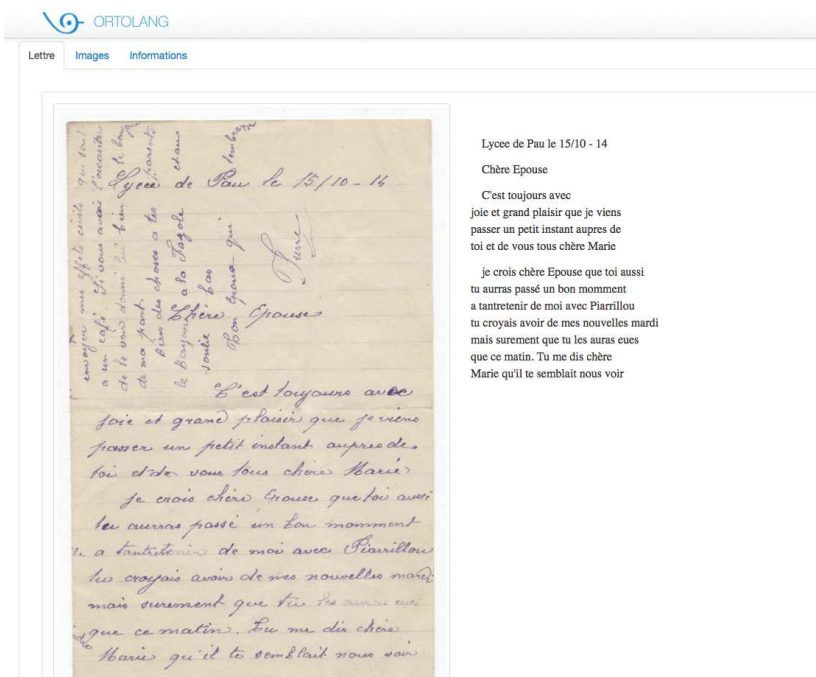 ORTOLANG
Lettre Images Informations
envoyer mes effets civils qui sont
a un café. Si vous aviez l'occasion
de le voir donné lui bien le bon
de ma part. parents
bien des choses a tes
le Bayonn a la et au
soulié bas
ton Epoux qui
Pierre
Lycee de Pau le 15/10 - 14
Chère Epouse
C'est toujours avec
joie et grand plaisir que je viens
passer un petit instant aupres de
toi et de vous tous chère Marie
je crois chère Epouse que toi aussi
tu aurras passé un bon momment
a tantretenir de moi avec Piarrillou
tu croyais avoir de mes nouvelles mardi
mais surement que tu les auras eues
que ce matin. Tu me dis chère
Marie qu'il te semblait nous voir
Lycee de Pau le 15/10 - 14
Chère Epouse
C'est toujours avec
joie et grand plaisir que je viens
passer un petit instant aupres de
toi et de vous tous chère Marie
je crois chère Epouse que toi aussi
tu aurras passé un bon momment
a tantretenir de moi avec Piarrillou
tu croyais avoir de mes nouvelles mardi
mais surement que tu les auras eues
que ce matin. Tu me dis chère
Marie qu'il te semblait nous voir